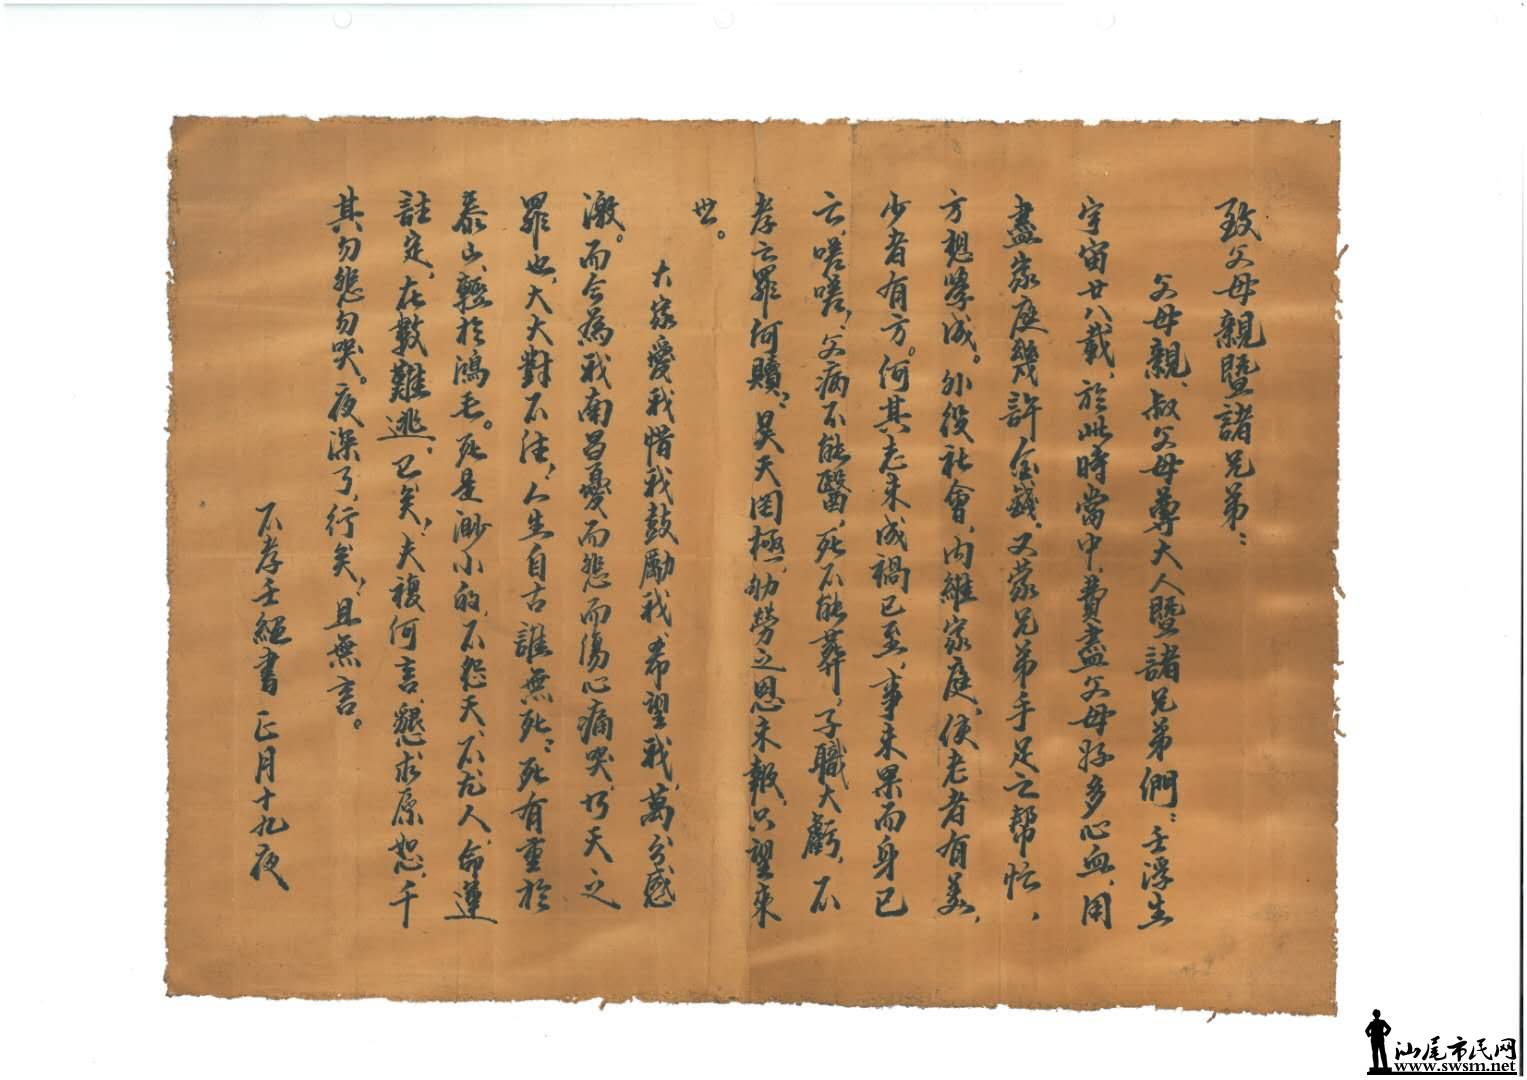 致父母親暨諸兄弟：
父母親、叔父母尊大人暨諸兄弟們：壬浮生
宇宙廿八載，於此時當中，費盡父母好多心血，用
盡家庭幾許金錢，又蒙兄弟手足之幫忙，
方想學成。外役社會，内維家庭，使老者有養，
少者有方。何其志未成禍已至，事未果而身已
亡，嗟嗟！父病不能醫，死不能葬，子職大虧，不
孝之罪何贖；昊天罔極，劬勞之恩未報，只望來
世。
大家愛我惜我鼓勵我，希望我，萬分感
激。而今為我南昌憂而悲而傷心痛哭，巧天之
罪也，大大對不住！人生自古誰無死；死有重於
泰山，輕於鴻毛。死是渺小的，不怨天，不尤人，命運
註定，在數難逃，已矣！夫複何言，懇求原恕，千
其勿悲勿哭。夜深了，行矣！且無言。
不孝壬繩書 正月十九夜
汕尾市民网
www.swsm.net